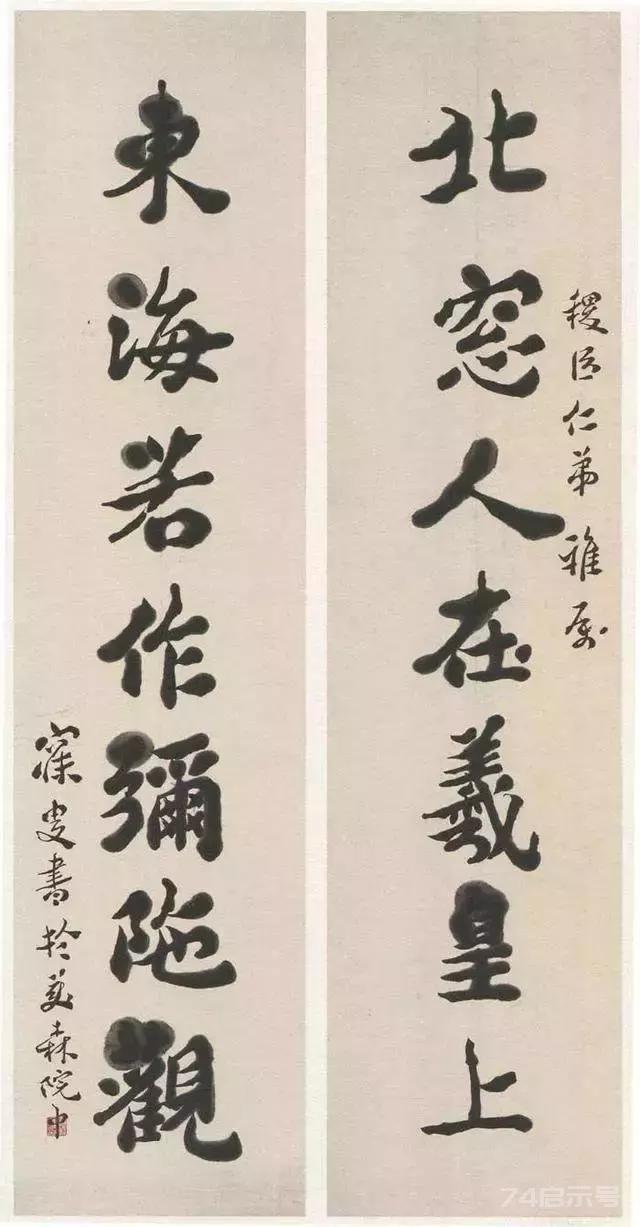 稷臣仁弟雅属
北窓人在羲皇上
東海若作彌陁觀
寐叟書於美森院中
74启示号